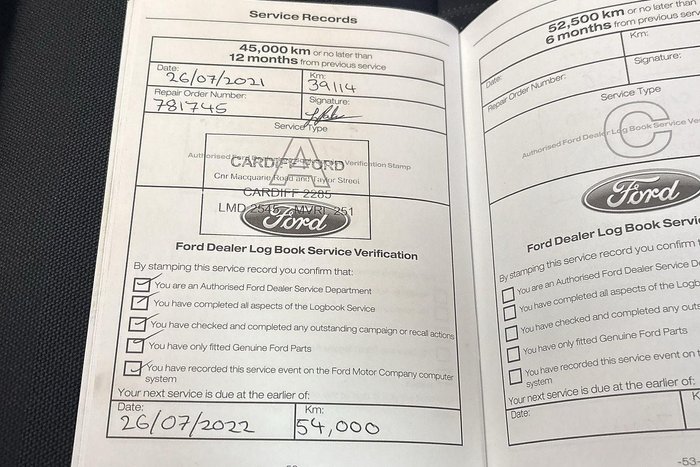 Service Records
45,000 km or no later than
12 months from previous service
Date: Km:
26/07/2021 39114
Repair Order Number: Signature:
781745
Service Type
A
Authorised Ford Dealer Log Book Service Verification Stamp
CARDIFF FORD
Cnr Macquarie Road and Taylor Street
CARDIFF 2285
LMD 2545 MVRL 251
Ford
Ford Dealer Log Book Service Verification
By stamping this service record you confirm that:
You are an Authorised Ford Dealer Service Department
You have completed all aspects of the Logbook Service
You have checked and completed any outstanding campaign or recall actions
You have only fitted Genuine Ford Parts
You have recorded this service event on the Ford Motor Company computer
system
Your next service is due at the earlier of:
Date: Km:
26/07/2022 54,000
52,500 km or no later than
6 months from previous serv
Date: Km:
Repair Order Number: Signature:
Service Type
C
Authorised Ford Dealer Log Book Service Ve
Ford
Ford Dealer Log Book Servic
By stamping this service record you confirm t
You are an Authorised Ford Dealer Service D
You have completed all aspects of the Logb
You have checked and completed any outs
You have only fitted Genuine Ford Parts
You have recorded this service event on t
system
Your next service is due at the earlier of:
Date: K
-53-